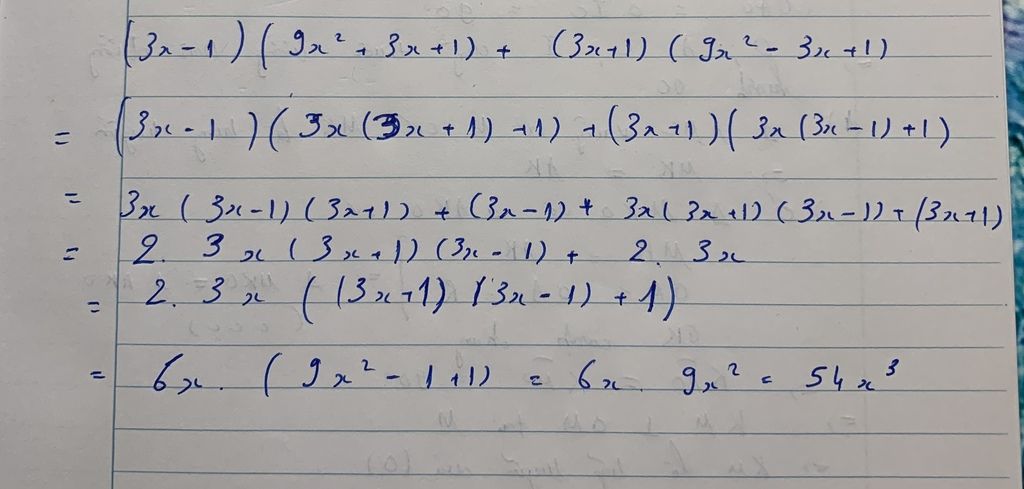 (3x-1)(9x² + 3x+1) + (3x+1)(9x² - 3x+1)
= (3x-1)(3x(3x+1)+1) + (3x+1)(3x(3x-1)+1)
= 3x(3x-1)(3x+1) + (3x-1) + 3x(3x+1)(3x-1) + (3x+1)
= 2. 3x(3x+1)(3x-1) + 2. 3x
= 2. 3x((3x+1)(3x-1)+1)
= 6x. (9x² - 1+1) = 6x. 9x² = 54x³